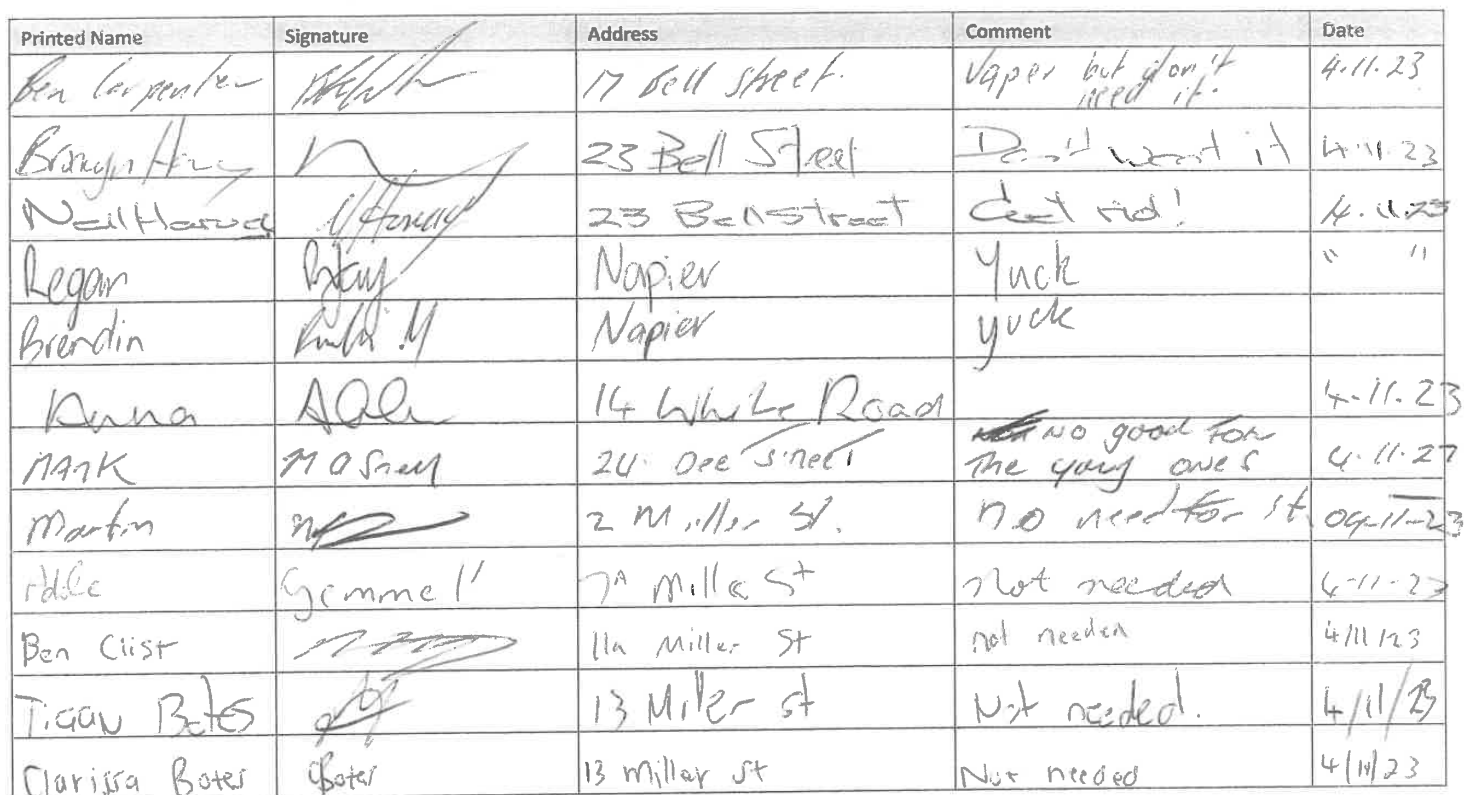 Printed Name Signature Address Comment Date
Ben Carpenter 17 Bell street. Vaper but don't need it. 4.11.23
23 Bell Street Don't want it 4.11.23
Neil 23 Bell Street Get rid! 4.11.23
Regan Napier Yuck " "
Brendin Napier yuck
Anna 14 White Road 4.11.23
MARK 24 Dee Street NO good for the young ones 4.11.23
Martin 2 Miller St. no need for it 04-11-23
Gemmell 7A Miller St not needed 4-11-23
Ben Clist 11a Miller St not needed 4/11/23
Tigan Bates 13 Miller st Not needed. 4/11/23
Clarissa Bates CBates 13 Millar st Not needed 4/11/23